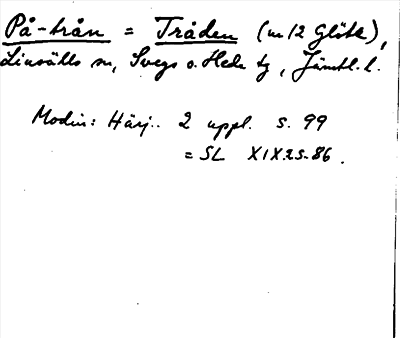 På-trån = Tråden (m 12 Glöte),
Linsälls sn, Svegs o. Hede tg, Jämtl. l.
Modin: Härj.. 2 uppl. s. 99
= SL XIX.2 s. 86.